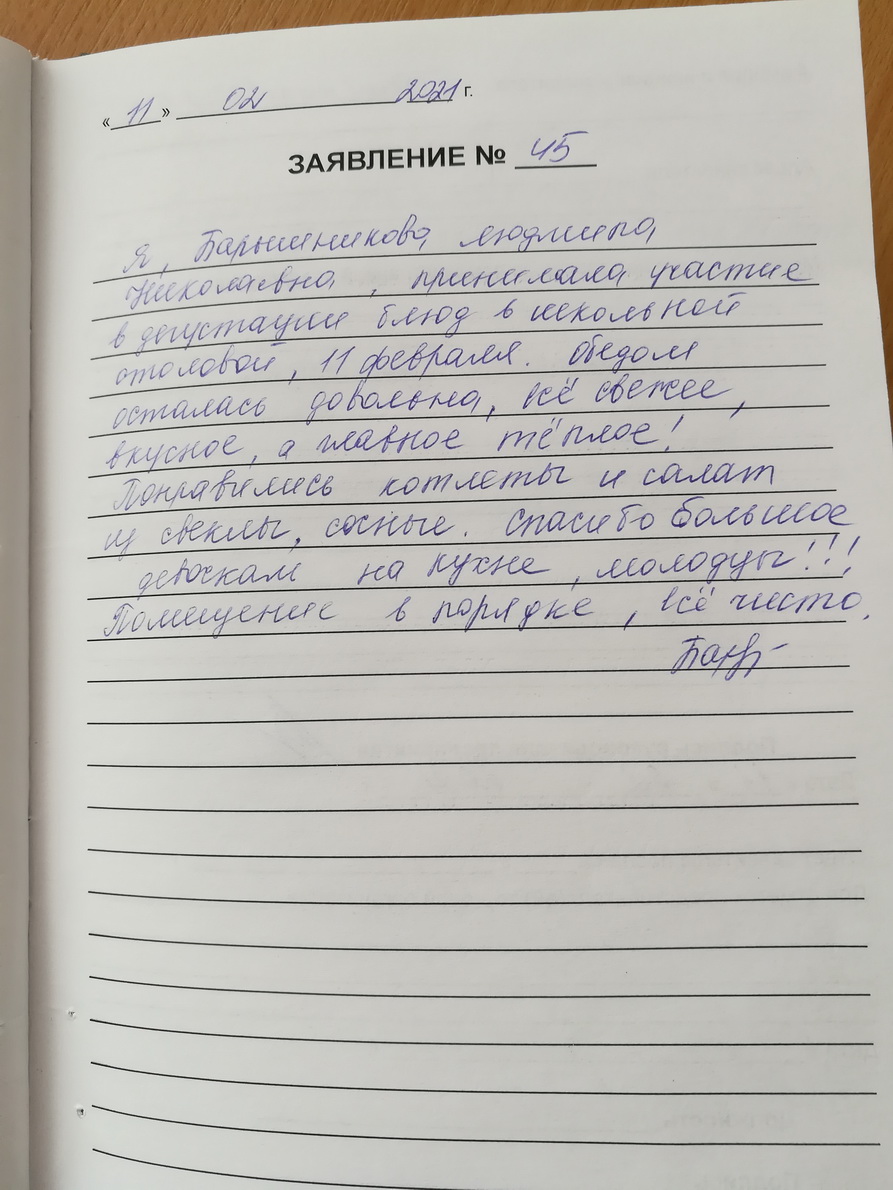 « 11 » 02 2021 г.
ЗАЯВЛЕНИЕ № 45
Я, Барышникова Людмила
Николаевна, принимала участие
в дегустации блюд в школьной
столовой, 11 февраля. Обедом
осталась довольна, всё свежее,
вкусное, а главное тёплое!
Понравились котлеты и салат
из свеклы, сосные. Спасибо большое
девочкам на кухне, молодцы!!!
Помещение в порядке, всё чисто.